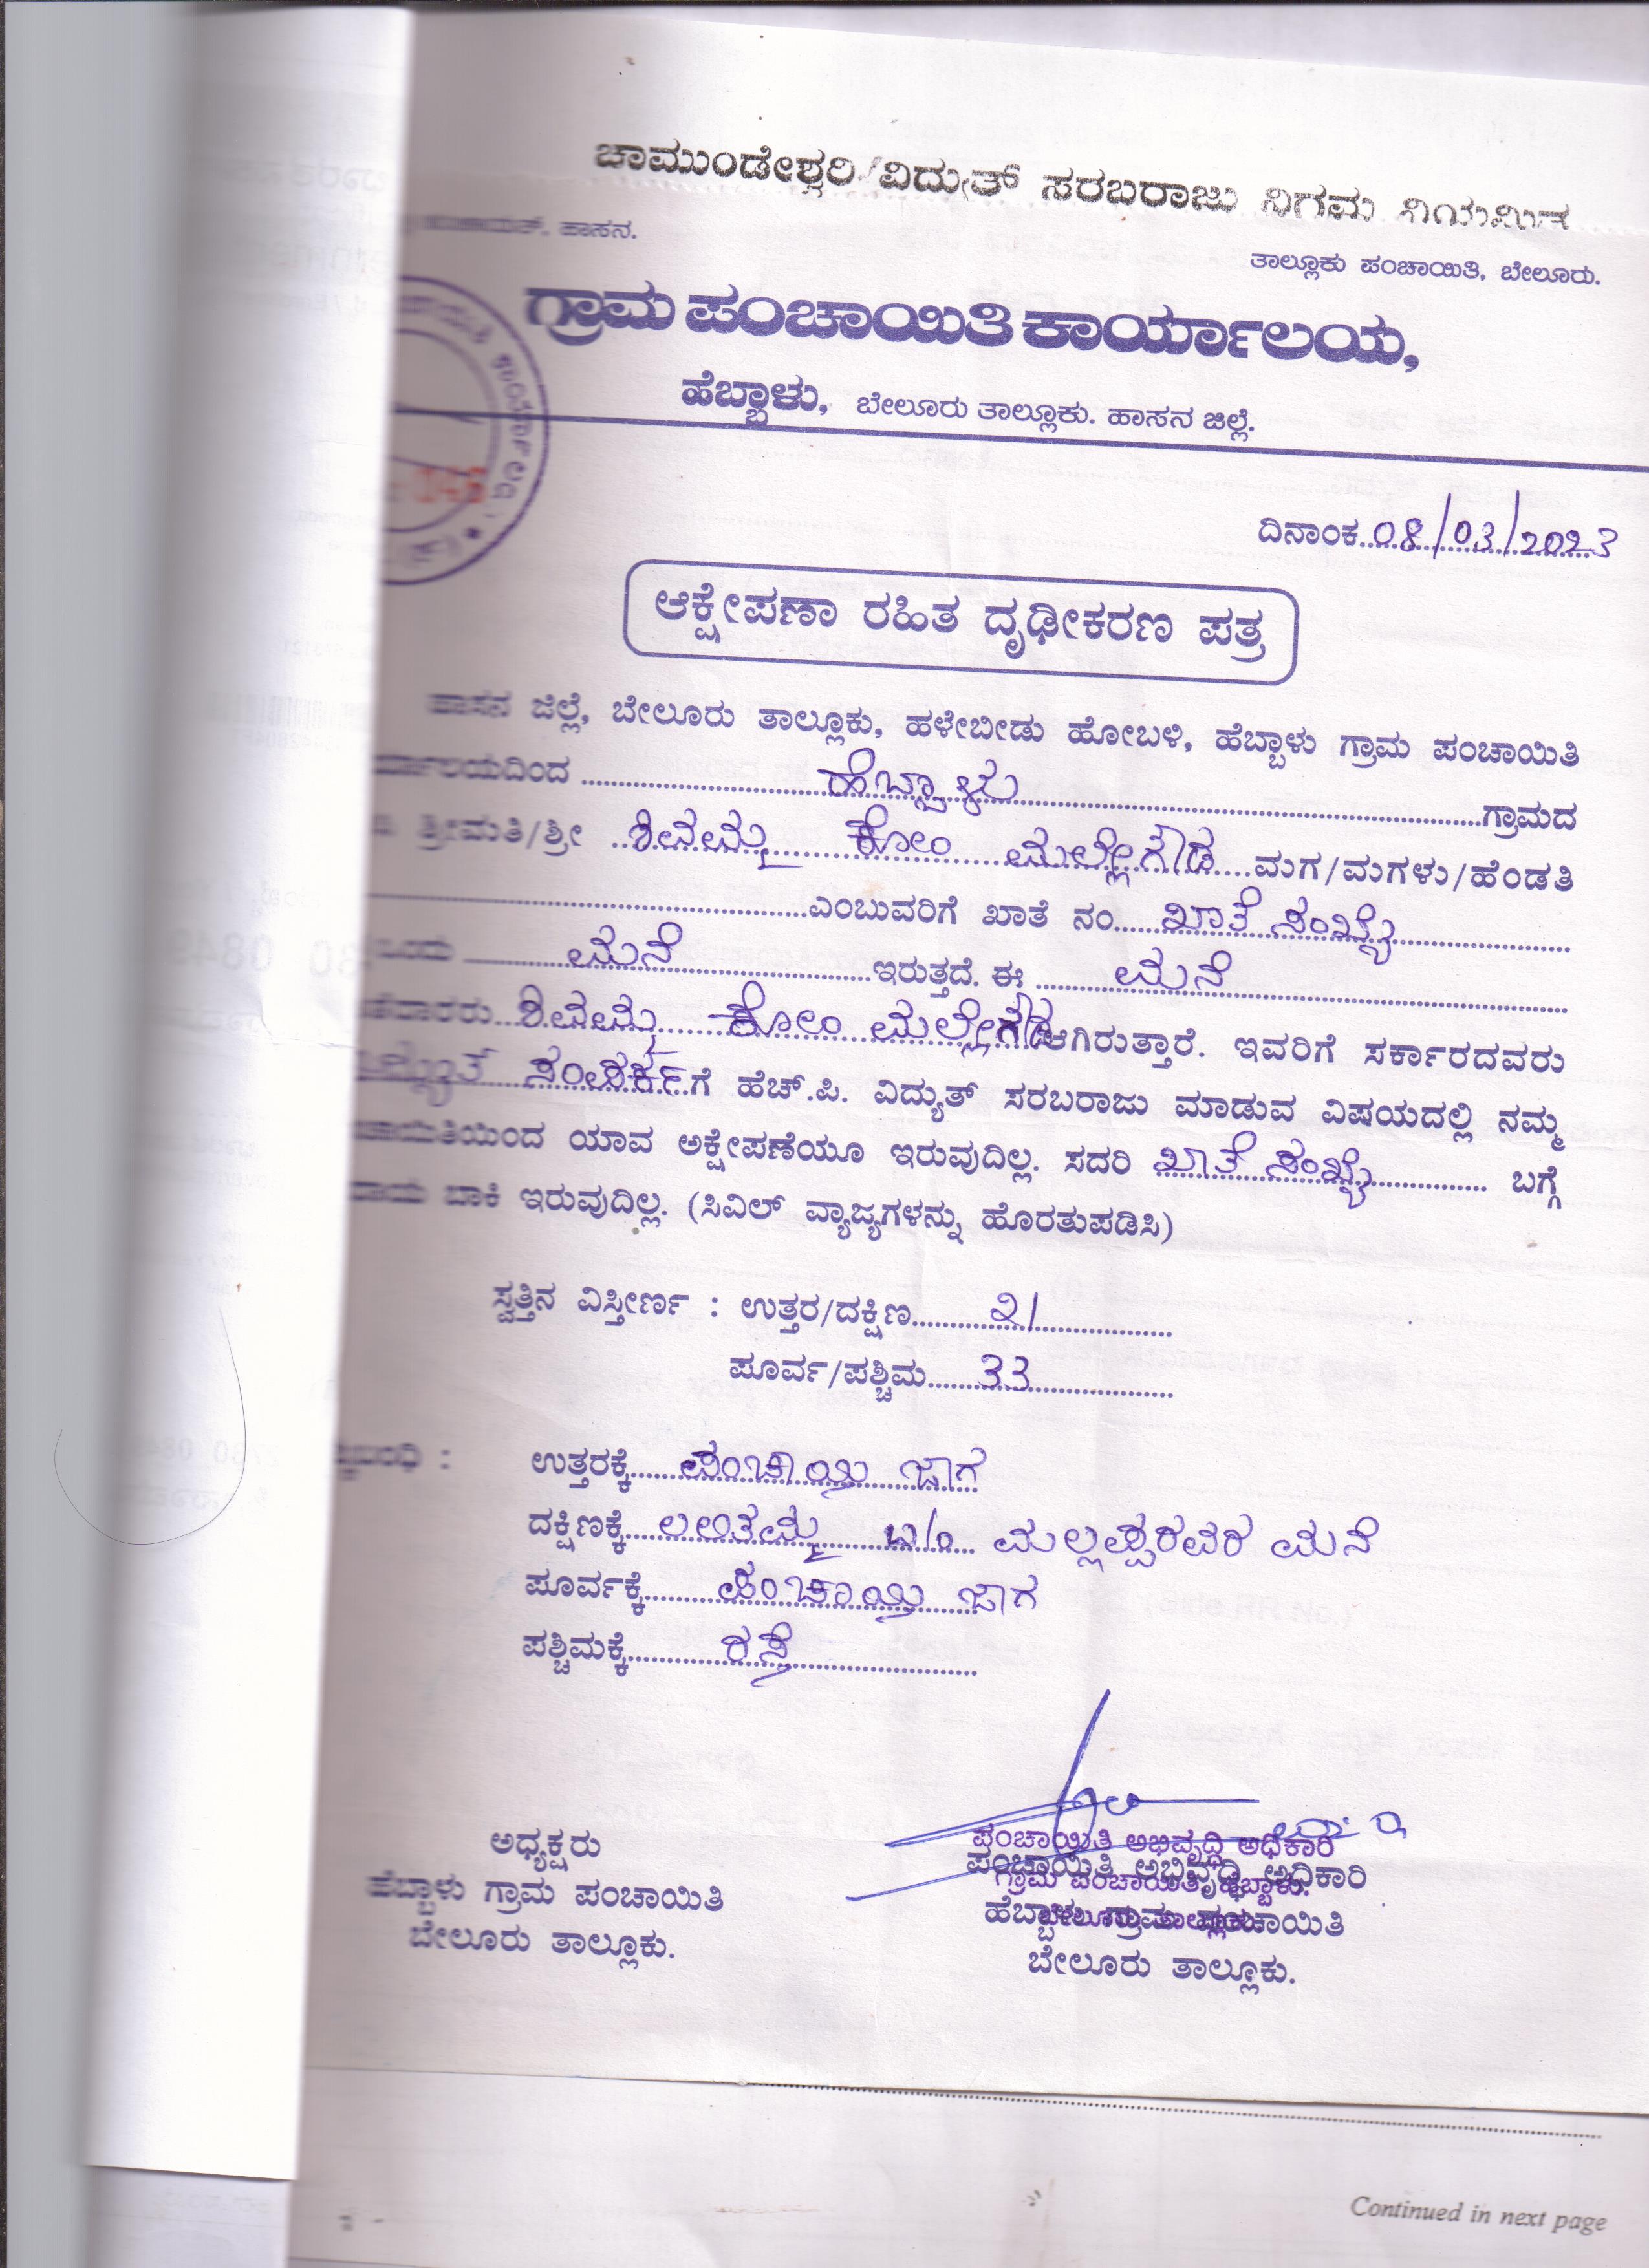 ಚಾಮುಂಡೇಶ್ವರಿ ವಿದ್ಯುತ್ ಸರಬರಾಜು ನಿಗಮ ನಿಯಮಿತ
ಹಾಸನ.
ತಾಲ್ಲೂಕು ಪಂಚಾಯಿತಿ, ಬೇಲೂರು.
ಗ್ರಾಮ ಪಂಚಾಯಿತಿ ಕಾರ್ಯಾಲಯ,
ಹೆಬ್ಬಾಳು, ಬೇಲೂರು ತಾಲ್ಲೂಕು. ಹಾಸನ ಜಿಲ್ಲೆ.
ದಿನಾಂಕ 08/03/2023
ಆಕ್ಷೇಪಣಾ ರಹಿತ ದೃಢೀಕರಣ ಪತ್ರ
ಹಾಸನ ಜಿಲ್ಲೆ, ಬೇಲೂರು ತಾಲ್ಲೂಕು, ಹಳೇಬೀಡು ಹೋಬಳಿ, ಹೆಬ್ಬಾಳು ಗ್ರಾಮ ಪಂಚಾಯಿತಿ
ರ್ಯಾಲಯದಿಂದ ಹೆಬ್ಬಾಳು ಗ್ರಾಮದ
ಶ್ರೀಮತಿ/ಶ್ರೀ ಶಿವಮ್ಮ ಕೋಂ ಮಲ್ಲೇಗೌಡ ಮಗ/ಮಗಳು/ಹೆಂಡತಿ
ಎಂಬುವರಿಗೆ ಖಾತೆ ನಂ ಖಾತೆ ಸಂಖ್ಯೆ
ಒಂದು ಮನೆ ಇರುತ್ತದೆ. ಈ ಮನೆ
ಶಿವಮ್ಮ ಕೋಂ ಮಲ್ಲೇಗೌಡ ಆಗಿರುತ್ತಾರೆ. ಇವರಿಗೆ ಸರ್ಕಾರದವರು
ಸಂಪರ್ಕ ಗೆ ಹೆಚ್.ಪಿ. ವಿದ್ಯುತ್ ಸರಬರಾಜು ಮಾಡುವ ವಿಷಯದಲ್ಲಿ ನಮ್ಮ
ಚಾಯಿತಿಯಿಂದ ಯಾವ ಅಕ್ಷೇಪಣೆಯೂ ಇರುವುದಿಲ್ಲ. ಸದರಿ ಖಾತೆ ಸಂಖ್ಯೆ ಬಗ್ಗೆ
ದಾಯ ಬಾಕಿ ಇರುವುದಿಲ್ಲ. (ಸಿವಿಲ್ ವ್ಯಾಜ್ಯಗಳನ್ನು ಹೊರತುಪಡಿಸಿ)
ಸ್ವತ್ತಿನ ವಿಸ್ತೀರ್ಣ : ಉತ್ತರ/ದಕ್ಷಿಣ 21
ಪೂರ್ವ/ಪಶ್ಚಿಮ 33
ಬಂಧಿ : ಉತ್ತರಕ್ಕೆ ಪಂಚಾಯ್ತಿ ಜಾಗ
ದಕ್ಷಿಣಕ್ಕೆ ಲಲಿತಮ್ಮ w/o ಮಲ್ಲಪ್ಪರವರ ಮನೆ
ಪೂರ್ವಕ್ಕೆ ಪಂಚಾಯ್ತಿ ಜಾಗ
ಪಶ್ಚಿಮಕ್ಕೆ ರಸ್ತೆ
ಅಧ್ಯಕ್ಷರು
ಹೆಬ್ಬಾಳು ಗ್ರಾಮ ಪಂಚಾಯಿತಿ
ಬೇಲೂರು ತಾಲ್ಲೂಕು.
ಪಂಚಾಯಿತಿ ಅಭಿವೃದ್ಧಿ ಅಧಿಕಾರಿ
ಪಂಚಾಯಿತಿ ಅಭಿವೃದ್ಧಿ ಅಧಿಕಾರಿ
ಗ್ರಾಮ ಪಂಚಾಯಿತಿ, ಹೆಬ್ಬಾಳು.
ಹೆಬ್ಬಾಳು ಗ್ರಾಮ ಪಂಚಾಯಿತಿ
ಬೇಲೂರು ತಾಲ್ಲೂಕು.
Continued in next page